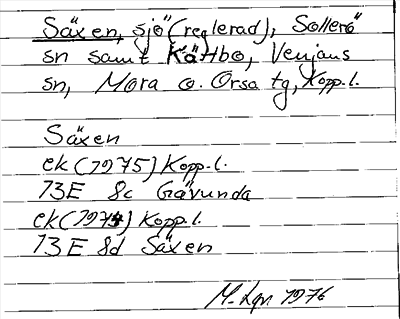 Säxen, sjö (reglerad), Sollerö
sn samt Kättbo, Venjans
sn, Mora o. Orsa tg, Kopp. l.
Säxen
ek (1975) Kopp. l.
13E 8c Gävunda
ek (1974) Kopp. l.
13E 8d Säxen
M. Lgn 1976